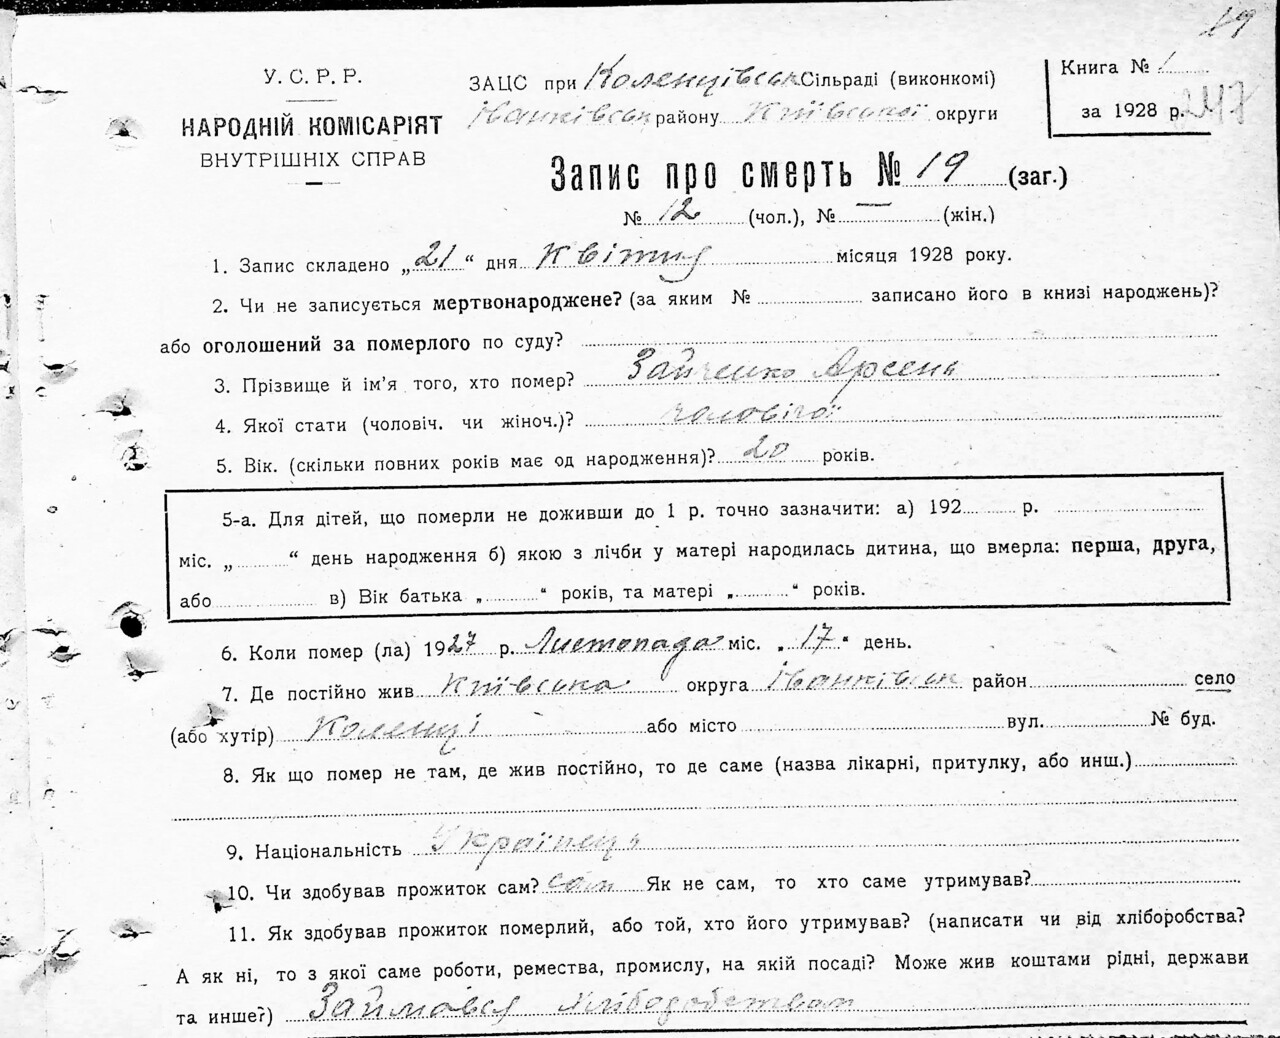 19
У. С. Р. Р.
НАРОДНІЙ КОМІСАРІЯТ
ВНУТРІШНІХ СПРАВ
ЗАЦС при Коленцівськ Сільраді (виконкомі)
Іванківськ району Київської округи
Книга № 1
за 1928 р. 247
Запис про смерть № 19 (заг.)
№ 12 (чол.), № — (жін.)
1. Запис складено „21“ дня Квітня місяця 1928 року.
2. Чи не записується мертвонароджене? (за яким № записано його в книзі народжень)?
або оголошений за померлого по суду?
3. Прізвище й ім’я того, хто помер? Зайченко Арсень
4. Якої стати (чоловіч. чи жіноч.)? чоловічої
5. Вік. (скільки повних років має од народження)? 20 років.
5-а. Для дітей, що померли не доживши до 1 р. точно зазначити: а) 192 р.
міс. „ “ день народження б) якою з лічби у матері народилась дитина, що вмерла: перша, друга,
або в) Вік батька „ “ років, та матері „ “ років.
6. Коли помер (ла) 1927 р. Листопада міс. „17“ день.
7. Де постійно жив Київська округа Іванківськ район село
(або хутір) Коленці або місто вул. № буд.
8. Як що помер не там, де жив постійно, то де саме (назва лікарні, притулку, або инш.)
9. Національність Українець
10. Чи здобував прожиток сам? сам Як не сам, то хто саме утримував?
11. Як здобував прожиток померлий, або той, хто його утримував? (написати чи від хліборобства?
А як ні, то з якої саме роботи, ремества, промислу, на якій посаді? Може жив коштами рідні, держави
та инше?) Займався хліборобством